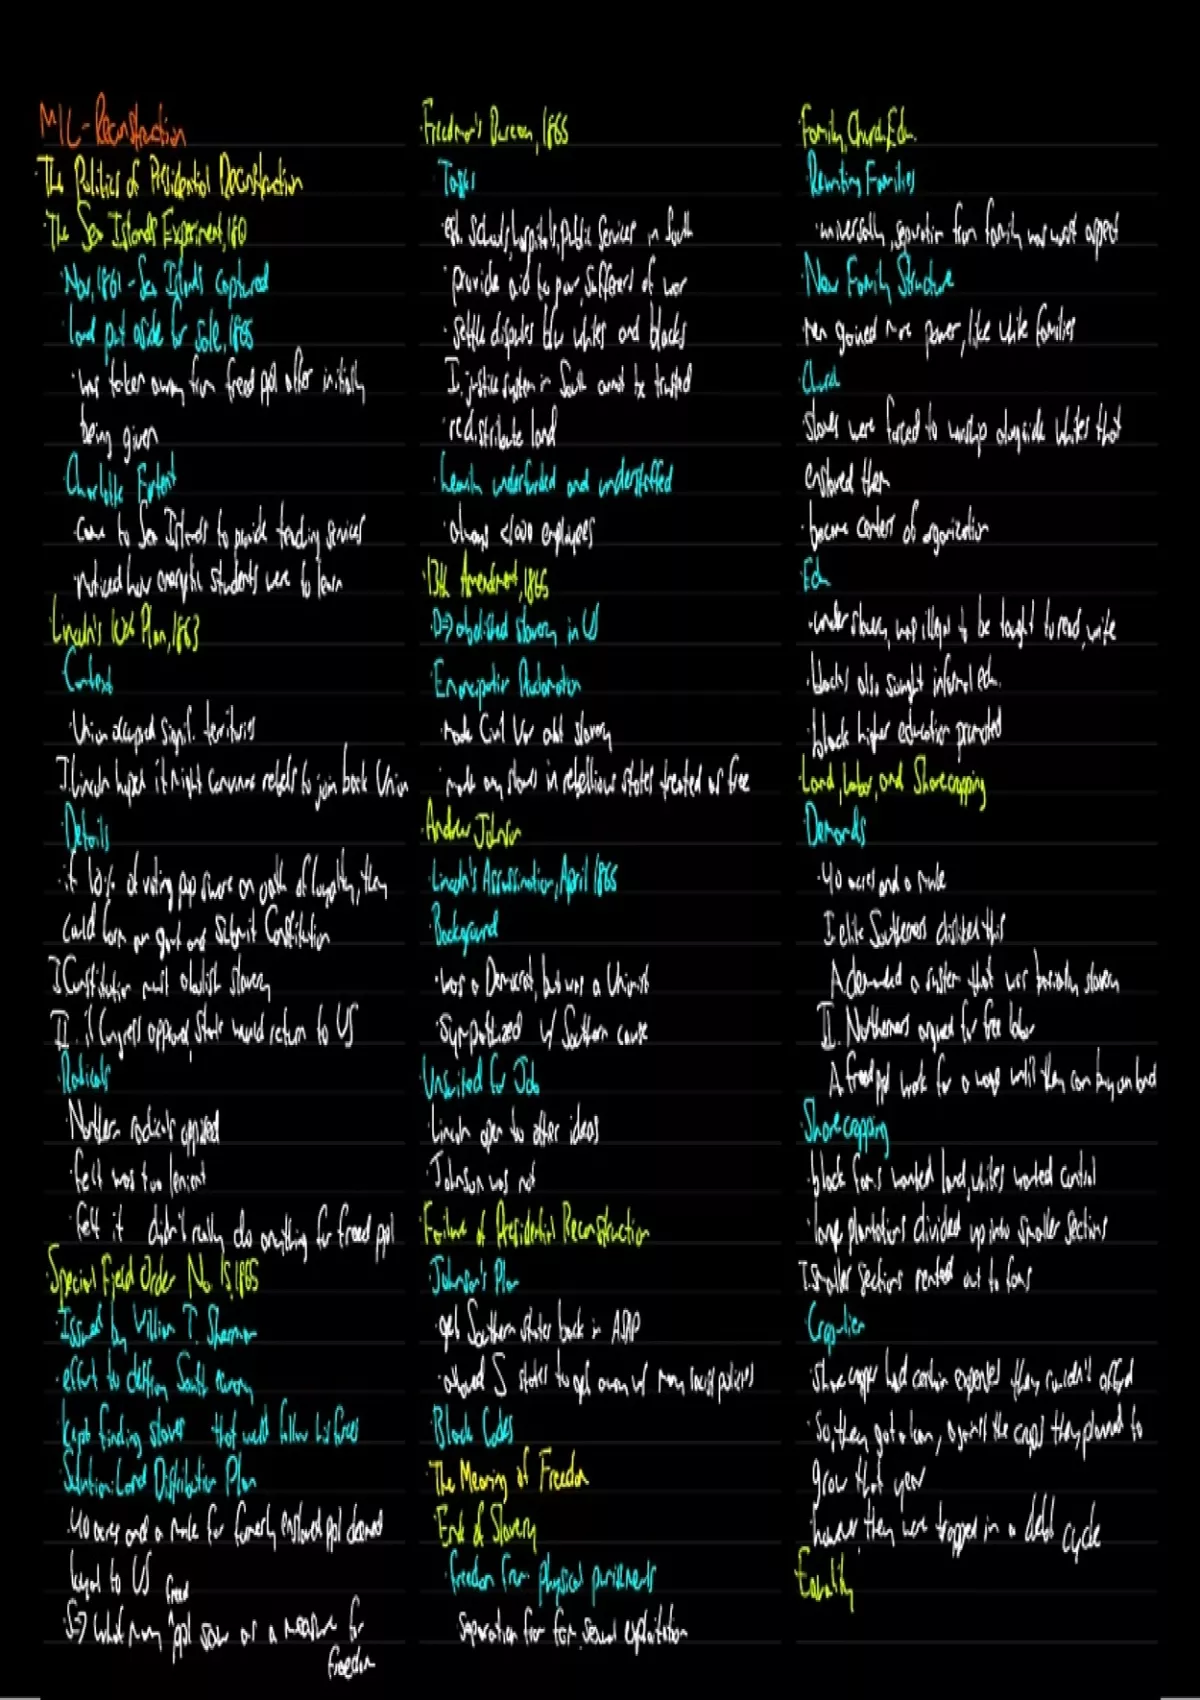 M1C - Reconstruction
· The Politics of Presidential Reconstruction
· The Sea Islands Experiment, 18
· Nov, 1861 - Sea Islands captured
· land put aside for sale, 1865
· was taken away from freed ppl after initially
being given
· Charlotte Forten
· came to Sea Islands to provide teaching services
· noticed how energetic students were to learn
· Lincoln's 10% Plan, 1863
· Context
· Union occupied signif. territories
I. Lincoln hoped it might convince rebels to join back Union
· Details
· if 10% of voting pop swore an oath of loyalty, they
could form a govt and submit Constitution
I. Constitution must abolish slavery
II. if Congress approved, state would return to US
· Radicals
· Northern radicals opposed
· felt was too lenient
· felt it didn't really do anything for freed ppl
· Special Field Order No. 15, 1865
· Issued by William T. Sherman
· effort to destroy South
· kept finding slaves that would follow his forces
· Solution: Land Distribution Plan
· 40 acres and a mule for formerly enslaved ppl deemed
loyal to US
· S=> what many freed ppl saw as a measure for
freedom
· Freedmen's Bureau, 1865
· Tasks
· est. schools, hospitals, public services in South
· provide aid to poor, sufferers of war
· settle disputes b/w whites and blacks
I. justice system in South cannot be trusted
· redistribute land
· heavily underfunded and understaffed
· always <1000 employees
· 13th Amendment, 1865
· D=> abolished slavery in US
· Emancipation Proclamation
· made Civil War abt slavery
· made any slaves in rebellious states treated as free
· Andrew Johnson
· Lincoln's Assassination, April 1865
· Background
· was a Democrat, but was a Unionist
· Sympathized w/ Southern cause
· Unsuited for Job
· Lincoln open to other ideas
· Johnson was not
· Failure of Presidential Reconstruction
· Johnson's Plan
· get Southern states back in ASAP
· allowed S states to get away w/ many racist policies
· Black Codes
· The Meaning of Freedom
· End of Slavery
· freedom from physical punishments
· separation from fam, sexual exploitation
· Family, Church, Edu.
· Reuniting Families
· universally, separation from family was worst aspect
· New Family Structure
men gained more power, like white families
· Church
slaves were forced to worship alongside whites that
enslaved them
· became centers of organization
· Edu
· under slavery, was illegal to be taught to read, write
· blacks also sought informal edu.
· black higher education promoted
· Land, Labor, and Sharecropping
· Demands
· 40 acres and a mule
I. elite Southerners disliked this
A. demanded a system that was basically slavery
II. Northerners argued for free labor
A. freed ppl work for a wage until they can buy own land
· Sharecropping
· black fams wanted land, whites wanted control
· large plantations divided up into smaller sections
I. smaller sections rented out to fams
· Crop-lien
· sharecropper had certain expenses they couldn't afford
· So, they got a loan, against the crops they planned to
grow that year
· however, they were trapped in a debt cycle
· Equality